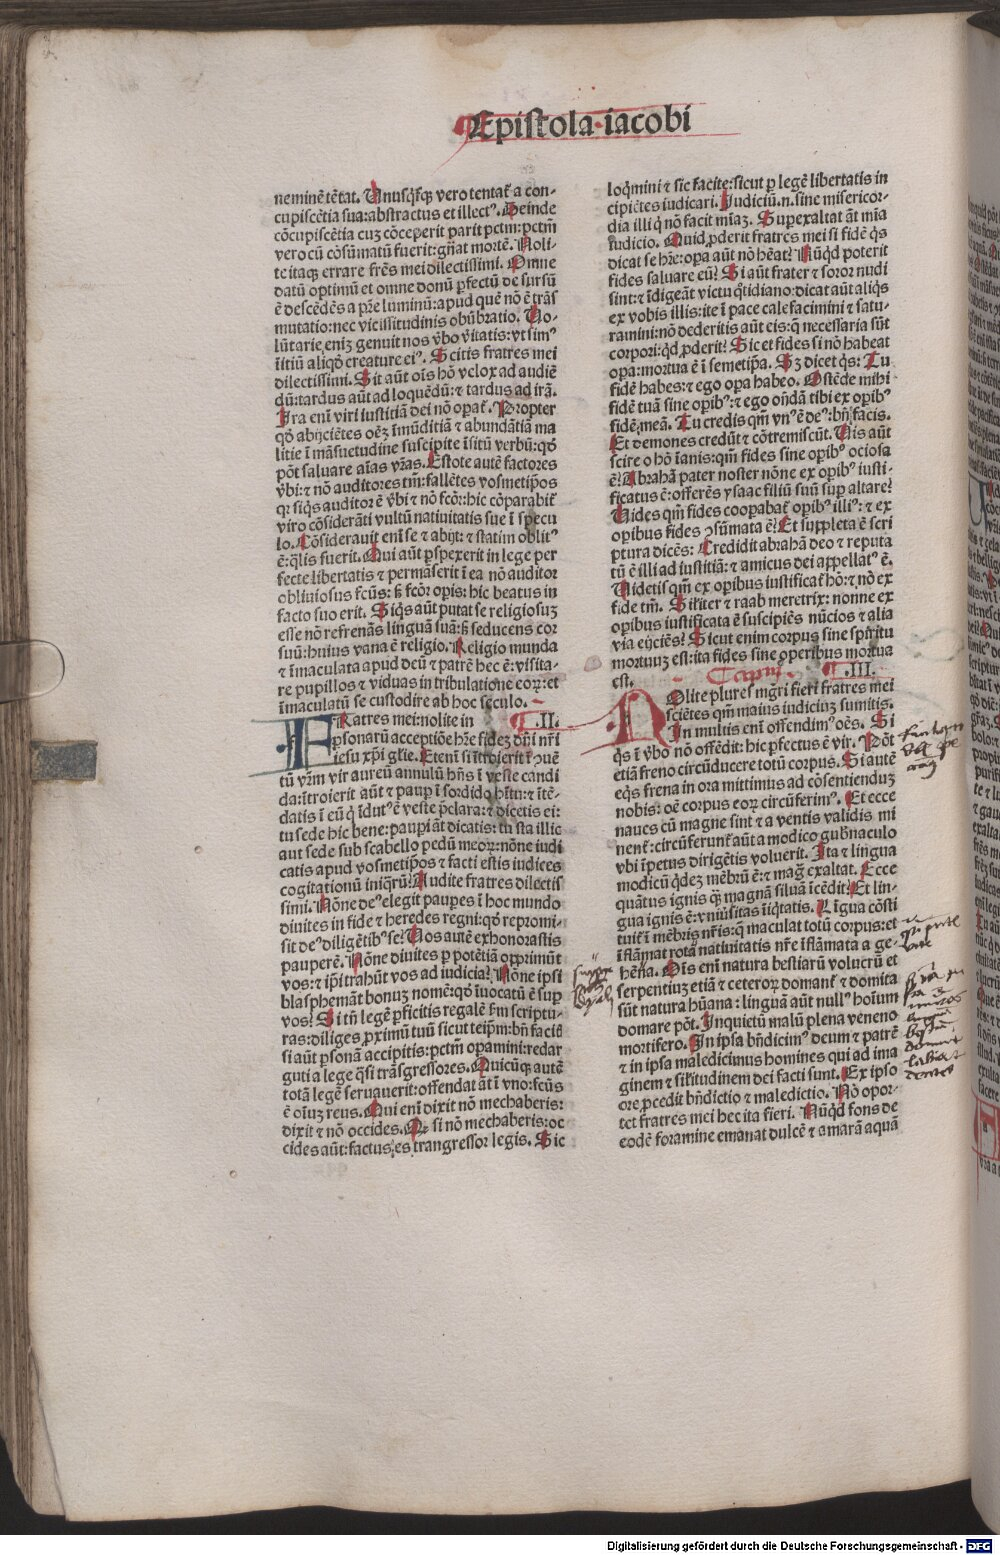 Epistola iacobi
neminē tētat. Unusq̄sq̨ vero tentat᷑ a con-
cupiscētia sua: abstractus et illectꝰ. Deinde
cōcupiscētia cuʒ cōceperit parit pctm̄: pctm̄
vero cū cōsūmatū fuerit: gn̄at mortē. Noli-
te itaq̨ errare frēs mei dilectissimi. Omne
datū optimū et omne donū ꝑfectū de sursū
ē descēdēs a pr̄e luminū: apud quē nō ē trās
mutatio: nec vicissitudinis obūbratio. Uo-
lūtarie eniʒ genuit nos v̄bo v̄itatis: vt simꝰ
initiū aliqd̄ creature eiꝰ. Scitis fratres mei
dilectissimi. Sit aūt oīs hō velox ad audiē
dū: tardus aūt ad loquēdū: ⁊ tardus ad irā.
Ira enī viri iustitiā dei nō oꝑat᷑. Propter
qd̄ abijciētes oēʒ īmūditiā ⁊ abundātiā ma
litie ī māsuetudine suscipite īsitū verbū: qd̄
pōt saluare aīas vr̄as. Estote autē factores
v̄bi: ⁊ nō auditores tm̄: fallētes vosmetip̄os
qꝛ siq̄s auditor ē v̄bi ⁊ nō fcōr: hic cōparabit᷑
viro cōsiderāti vultū natiuitatis sue ī specu
lo. Cōsiderauit enī se ⁊ abijt: ⁊ statim oblitꝰ
ē: q̄lis fuerit. Qui aūt ꝑspexerit in lege per
fecte libertatis ⁊ permāserit ī ea nō auditor
obliuiosus fcūs: sꝫ fcōr oꝑis: hic beatus in
facto suo erit. Siq̄s aūt putat se religiosuʒ
esse nō refrenās linguā suā: sꝫ seducens cor
suū: huius vana ē religio. Religio munda
⁊ īmaculata apud deū ⁊ patrē hec ē: visita-
re pupillos ⁊ viduas in tribulatione eoꝝ: et
īmaculatū se custodire ab hoc seculo.
.II.
FRatres mei: nolite in
ꝑsonarū acceptiōe hr̄e fideʒ dn̄i nr̄i
iesu xp̄i gl̄ie. Etenī si ītroierit ī ꝯuē
tū vr̄m vir aureū annulū hn̄s ī veste candi
da: ītroierit aūt ⁊ pauꝑ ī sordido hītu: ⁊ ītē-
datis ī eū q̄ īdutꝰ ē veste p̄clara: ⁊ dicetis ei:
tu sede hic bene: pauꝑi āt dicatis: tu sta illic
aut sede sub scabello pedū meoꝝ: nōne iudi
catis apud vosmetip̄os ⁊ facti estis iudices
cogitationū iniq̄rū? Audite fratres dilectis
simi. Nōne deꝰ elegit pauꝑes ī hoc mundo
diuites in fide ⁊ heredes regni: qd̄ repromi-
sit deꝰ diligētibꝰ se? Uos autē exhonorastis
pauperē. Nōne diuites ꝑ potētiā opprimūt
vos: ⁊ ip̄i trahūt vos ad iudicia? Nōne ipsi
blasphemāt bonuʒ nomē: qd̄ īuocatū ē suꝑ
vos? Si tn̄ legē ꝑficitis regalē scḋm scriptu-
ras: diliges ꝓximū tuū sicut teip̄m: bn̄ faciē
si aūt ꝑsonā accipitis: pctm̄ oꝑamini: redar
guti a lege q̄si trāsgressores. Quicūq̨ autē
totā legē seruauerit: offendat āt ī vno: fcūs
ē oīuʒ reus. Qui enī dixit nō mechaberis:
dixit ⁊ nō occides. Qꝛ si nō mechaberis: oc
cides aūt: factus es trangressor legis. Sic
loq̄mini ⁊ sic facite: sicut ꝑ legē libertatis in
cipiētes iudicari. Judiciū.n. sine misericor-
dia illi q̄ nō facit mīaʒ. Suꝑexaltat āt mīa
iudicio. Quid ꝓderit fratres mei si fidē q̄s
dicat se hr̄e: oꝑa aūt nō hēat? Nūqd̄ poterit
fides saluare eū? Si aūt frater ⁊ soror nudi
sint: ⁊ īdigeāt victu q̄tidiano: dicat aūt aliq̄s
ex vobis illis: ite ī pace calefacimini ⁊ satu-
ramini: nō dederitis aūt eis: q̄ necessaria sūt
corpori: qd̄ ꝓderit? Sic et fides si nō habeat
oꝑa: mortua ē ī semetip̄a. Sʒ dicet q̄s: Tu
fidē habes: ⁊ ego oꝑa habeo. Ostēde mihi
fidē tuā sine oꝑibꝰ: ⁊ ego on̄dā tibi ex oꝑibꝰ
fidē meā. Tu credis qm̄ vnꝰ ē deꝰ: bn̄ facis.
Et demones credūt ⁊ cōtremiscūt. Uis aūt
scire o hō īanis: qm̄ fides sine oꝑibꝰ ociosa
ē? Abrahā pater noster nōne ex oꝑibꝰ iusti-
ficatus ē: offerēs ysaac filiū suū suꝑ altare?
Uides qm̄ fides cooꝑabat᷑ oꝑibꝰ illiꝰ: ⁊ ex
oꝑibus fides ꝯsūmata ē? Et suppleta ē scri
ptura dicēs: Credidit abrahā deo ⁊ reputa
tū ē illi ad iustitiā: ⁊ amicus dei appellatꝰ ē.
Uidetis qm̄ ex oꝑibus iustificat᷑ hō: ⁊ nō ex
fide tm̄. Sil̄iter ⁊ raab meretrix: nonne ex
oꝑibus iustificata ē suscipiēs nūcios ⁊ alia
via eijciēs? Sicut enim corpus sine spiritu
mortuuʒ est: ita fides sine operibus mortua
est. Capm̄. .III.
NOlite plures mgr̄i fieri fratres mei
sciētes qm̄ maius iudiciuʒ sumitis.
In multis enī offendimꝰ oēs. Si
q̄s ī v̄bo nō offēdit: hic ꝑfectus ē vir. Pōt
etiā freno circūducere totū corpus. Si autē
eq̄s frena in ora mittimus ad cōsentienduʒ
nobis: oē corpus eoꝝ circūferimꝰ. Et ecce
naues cū magne sint ⁊ a ventis validis mi
nent᷑: circūferunt᷑ aūt a modico gub̄naculo
vbi īpetus dirigētis voluerit. Ita ⁊ lingua
modicū qd̄eʒ mēbrū ē: ⁊ maḡ exaltat. Ecce
quātus ignis q̄ʒ magnā siluā īcēdit? Et lin-
gua ignis ē: vniūsitas īiq̄tatis. Līgua cōsti
tuit᷑ ī mēbris nr̄is: q̄ maculat totū corpus: et
īflāmat rotā natiuitatis nr̄e īflāmata a ge-
hēna. Ois enī natura bestiarū volucrū et
serpentiuʒ etiā ⁊ ceteroꝝ domant᷑ ⁊ domita
sūt natura hūana: linguā aūt nullꝰ hoīum
domare pōt. Inquietū malū plena veneno
mortifero. In ipsa bn̄dicimꝰ deum ⁊ patrē
⁊ in ipsa maledicimus homines qui ad ima
ginem ⁊ sil̄itudinem dei facti sunt. Ex ipso
ore ꝓcedit bn̄dictio ⁊ maledictio. Nō opor-
tet fratres mei hec ita fieri. Nūqd̄ fons de
eodē foramine emanat dulcē ⁊ amarā aquā
Digitalisierung gefördert durch die Deutsche Forschungsgemeinschaft - DFG